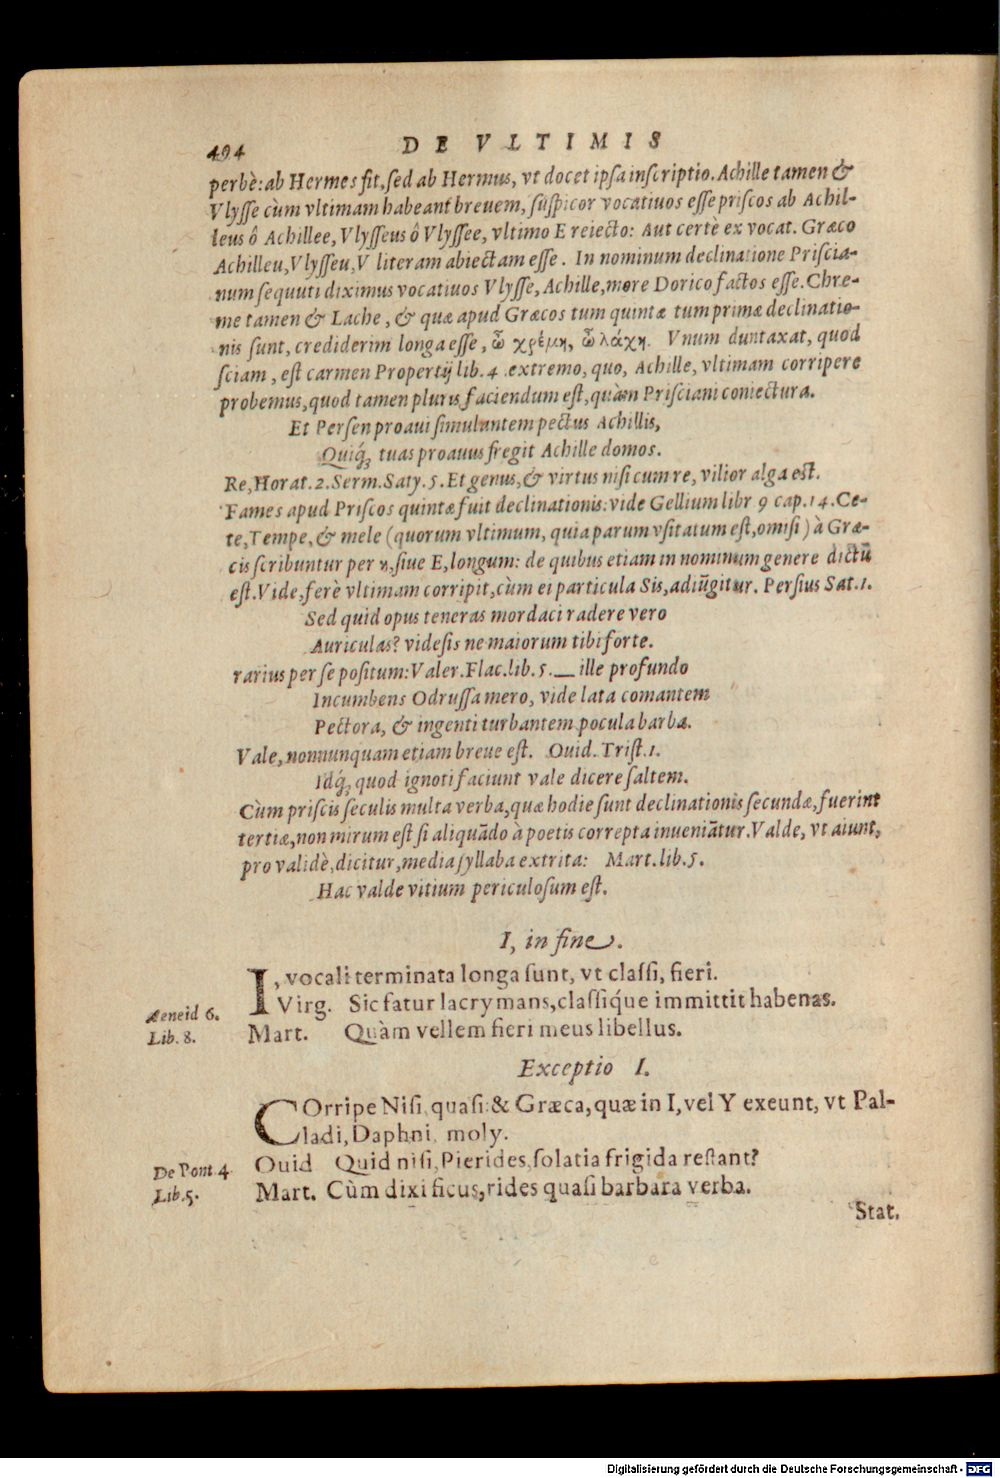 494 DE VLTIMIS
perbè: ab Hermes fit, sed ab Hermus, vt docet ipsa inscriptio. Achille tamen &
Vlysse cùm vltimam habeant breuem, suspicor vocatiuos esse priscos ab Achil-
leus ô Achillee, Vlysseus ô Vlyssee, vltimo E reiecto: Aut certè ex vocat. Græco
Achilleu, Vlysseu, V literam abiectam esse. In nominum declinatione Priscia-
num sequuti diximus vocatiuos Vlysse, Achille, more Dorico factos esse. Chre-
me tamen & Lache, & quæ apud Græcos tum quintæ tum primæ declinatio-
nis sunt, crediderim longa esse, ὦ χρέμη, ὦ λάχη. Vnum duntaxat, quod
sciam, est carmen Propertij lib. 4 extremo, quo, Achille, vltimam corripere
probemus, quod tamen pluris faciendum est, quàm Prisciani coniectura.
Et Persen proaui simulantem pectus Achillis,
Quiq́; tuas proauus fregit Achille domos.
Re, Horat. 2. Serm. Saty. 5. Et genus, & virtus nisi cum re, vilior alga est.
Fames apud Priscos quintæ fuit declinationis: vide Gellium libr 9 cap. 14. Ce-
te, Tempe, & mele (quorum vltimum, quia parum vsitatum est, omisi) à Græ-
cis scribuntur per η, siue E, longum: de quibus etiam in nominum genere dictū
est. Vide, ferè vltimam corripit, cùm ei particula Sis, adiūgitur. Persius Sat. 1.
Sed quid opus teneras mordaci radere vero
Auriculas? videsis ne maiorum tibi forte.
rarius per se positum: Valer. Flac. lib. 5. — ille profundo
Incumbens Odrussa mero, vide lata comantem
Pectora, & ingenti turbantem pocula barba.
Vale, nonnunquam etiam breue est. Ouid. Trist. 1.
Idq́; quod ignoti faciunt vale dicere saltem.
Cùm priscis seculis multa verba, quæ hodie sunt declinationis secundæ, fuerint
tertiæ, non mirum est si aliquādo à poetis correpta inueniātur. Valde, vt aiunt,
pro validè, dicitur, media syllaba extrita: Mart. lib. 5.
Hac valde vitium periculosum est.
I, in fine.
I, vocali terminata longa sunt, vt classi, fieri.
Æneid 6. Virg. Sic fatur lacrymans, classiq́ue immittit habenas.
Lib. 8. Mart. Quàm vellem fieri meus libellus.
Exceptio I.
COrripe Nisi, quasi: & Græca, quæ in I, vel Y exeunt, vt Pal-
ladi, Daphni, moly.
De Pont 4 Ouid Quid nisi, Pierides, solatia frigida restant?
Lib. 5. Mart. Cùm dixi ficus, rides quasi barbara verba.
Stat.
Digitalisierung gefördert durch die Deutsche Forschungsgemeinschaft - DFG